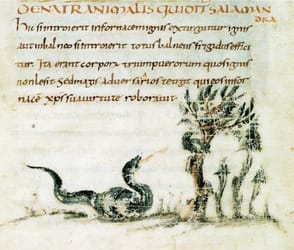 DENATRANIMALISQUIDITSALAMAN
DRA
hic siintroierit infornacemignis extinguitur ignis
autinbalneo siintroierit totus balneus frigidus effici
tur Ita erant corpora triumpuerorum quosignis
nonlesit sedmagis adversarios tetigit
nace xps suavirtute roboravit